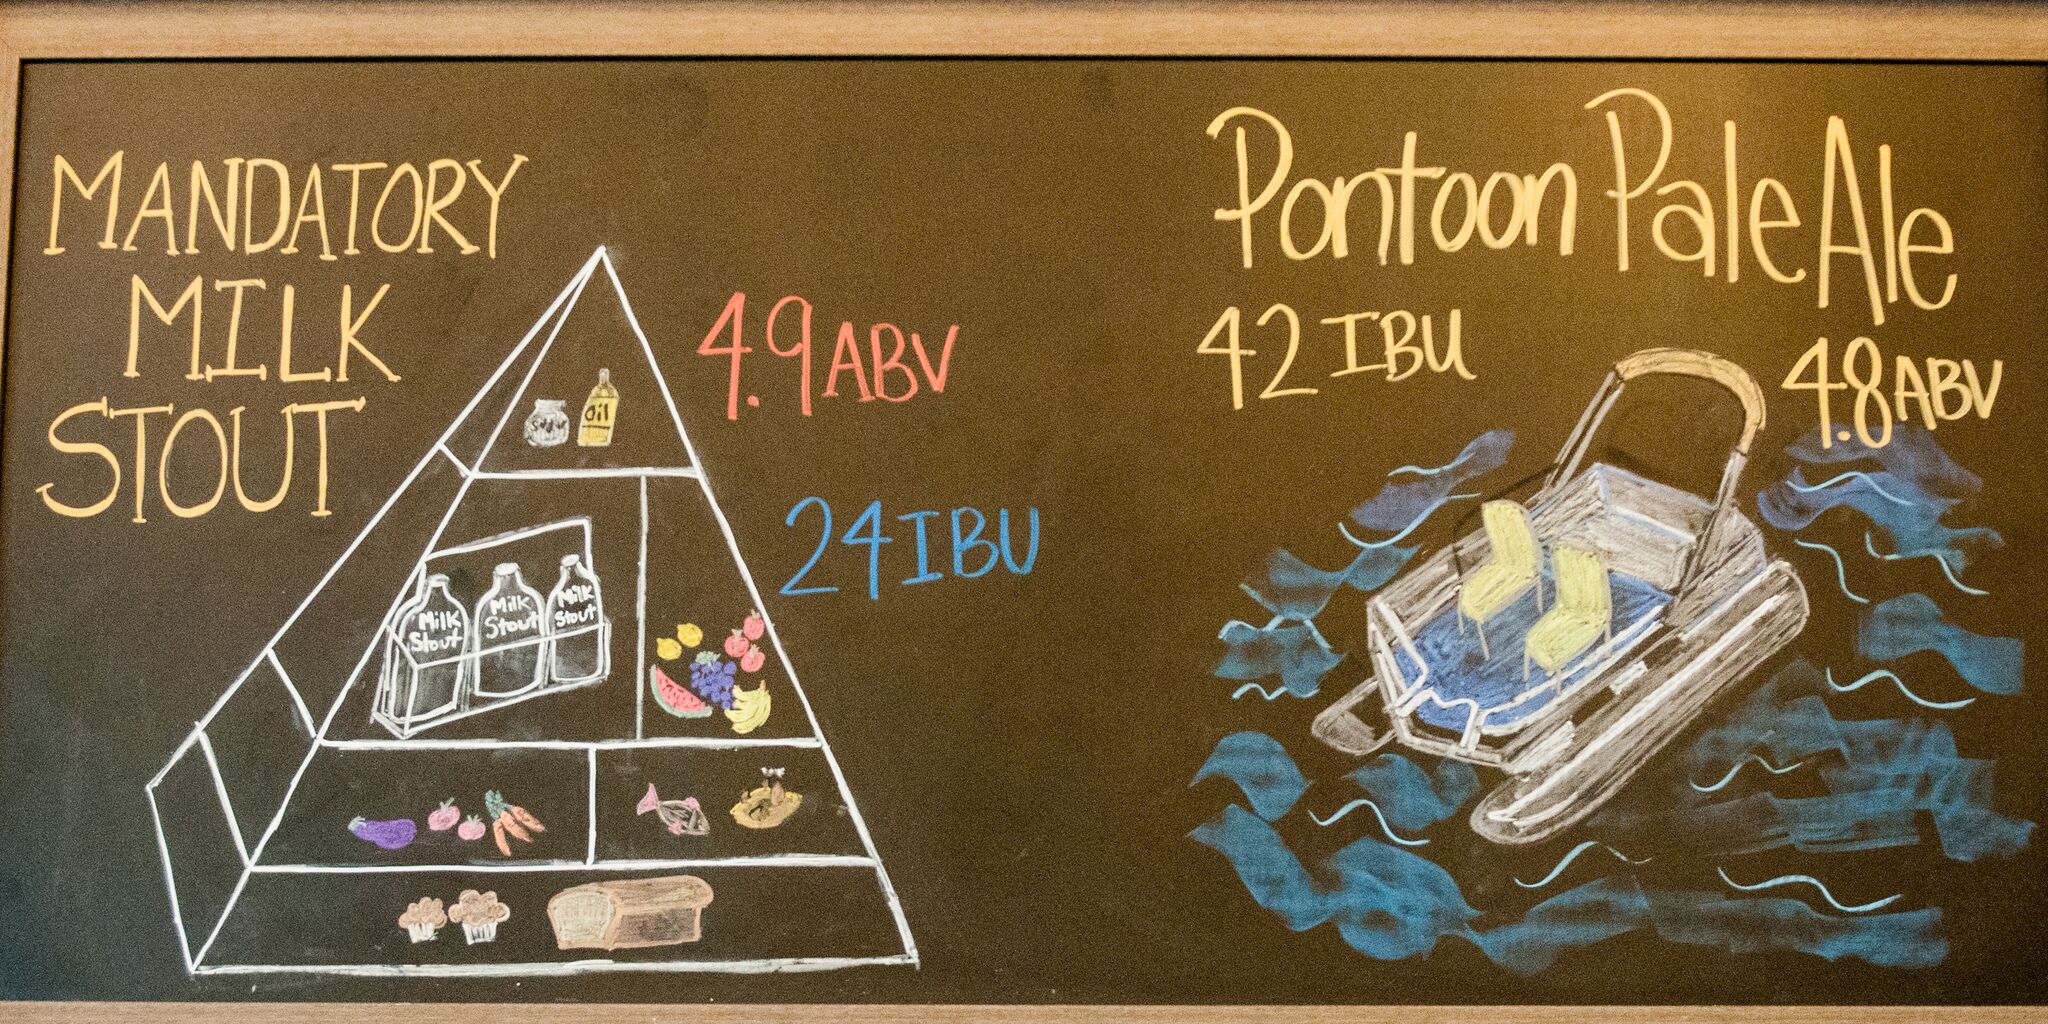 MANDATORY
MILK
STOUT
4.9 ABV
24 IBU
Sugar
Oil
Milk
Stout
Milk
Stout
Milk
Stout
Pontoon Pale Ale
42 IBU
4.8 ABV